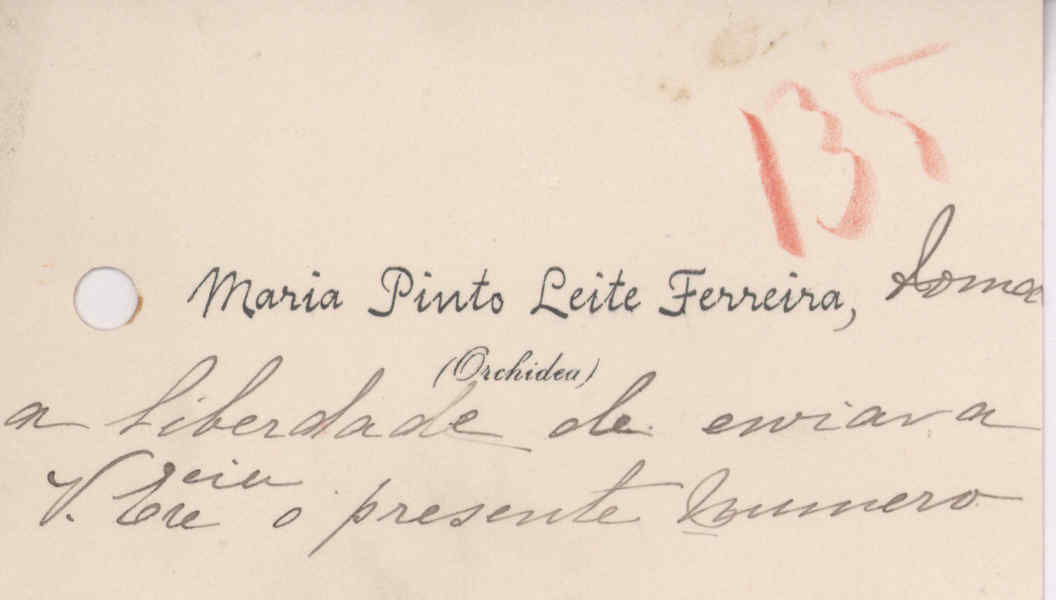 135
Maria Pinto Leite Ferreira, toma
(Orchidea)
a liberdade de enviar a
V. Excia o presente numero